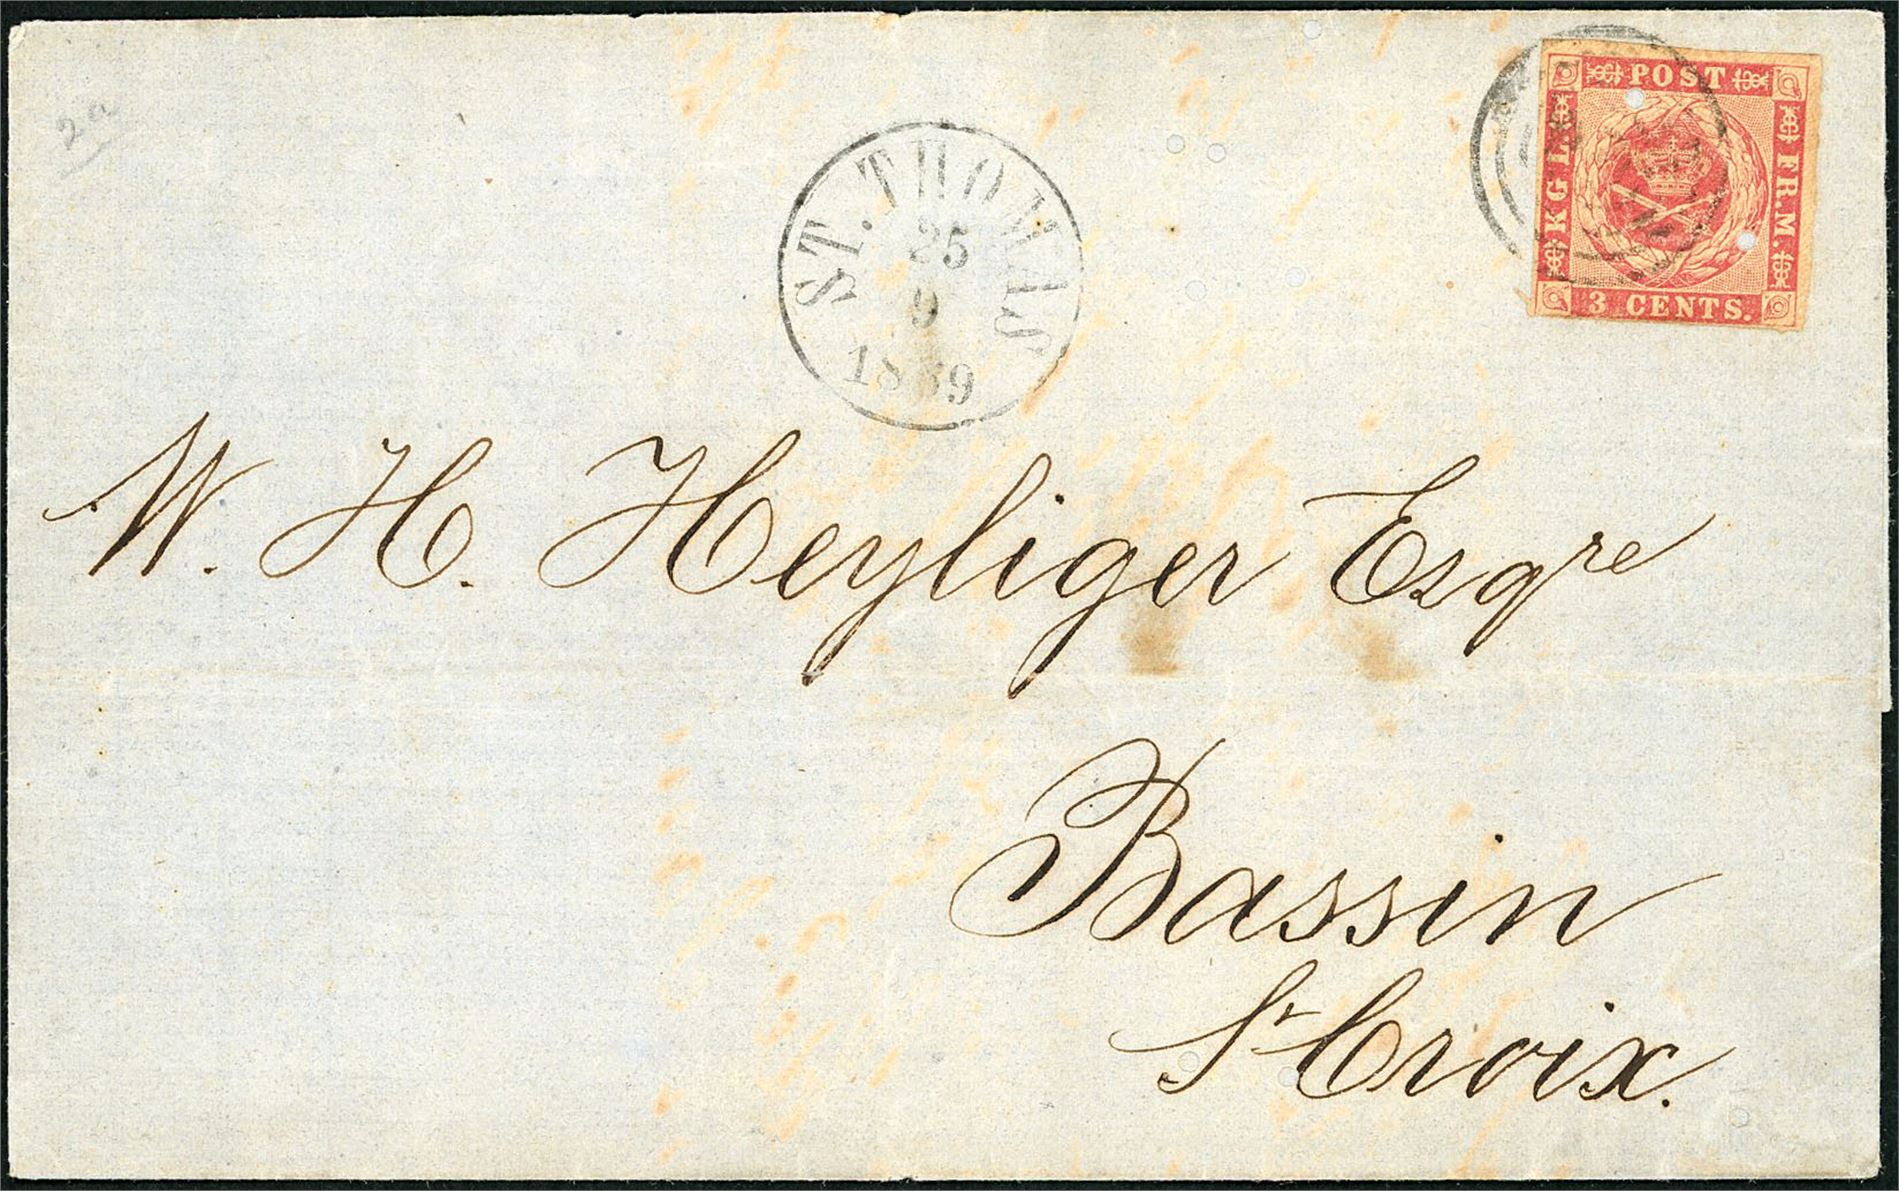 2a
POST
KGL
FR.M.
3 CENTS.
ST. THOMAS
25
9
1869
W. H. Heyliger Esqre
Bassin
St Croix.